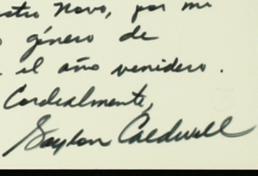 stro Novo, por mi
género de
el año venidero.
Cordialmente,
Gaylon Caldwell